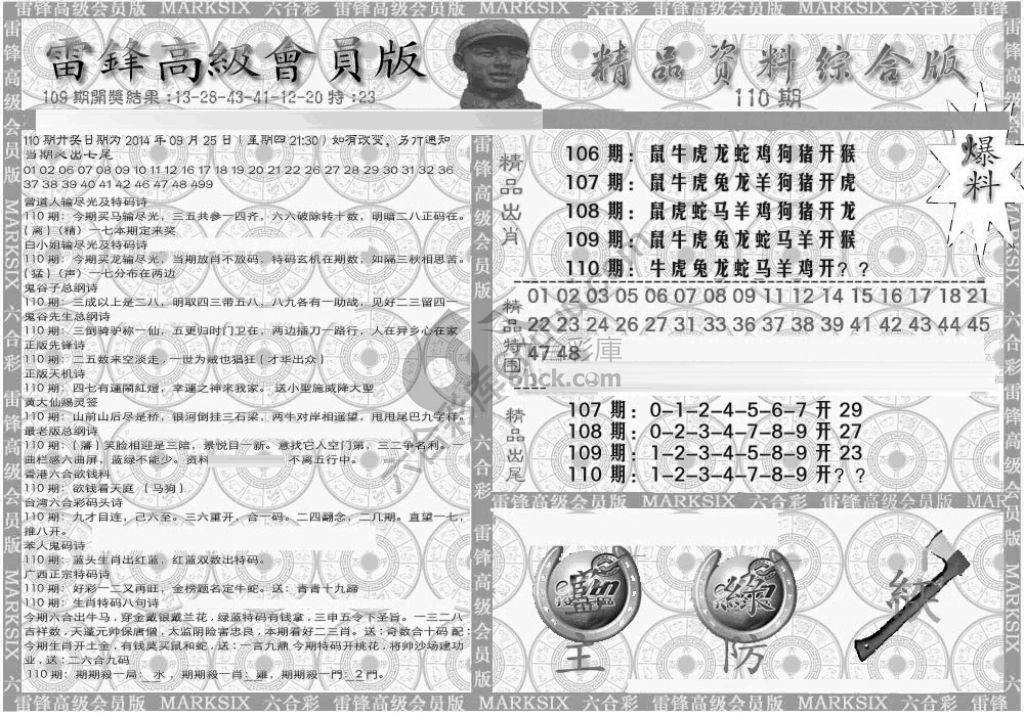 雷锋高级会员版 MARKSIX 六合彩 雷锋高级会员版 MARKSIX 六合彩 雷锋高级会员版 MARKSIX 六合彩
雷鋒高級會員版
109 期開獎結果:13-28-43-41-12-20 特:23
精品资料综合版
110 期
爆料
110 期开奖日期为 2014 年 09 月 25 日(星期四 21:30)如有改变，另行通知
当期必出七尾
01 02 06 07 08 09 10 11 12 16 17 18 19 20 21 22 26 27 28 29 30 31 32 36
37 38 39 40 41 42 46 47 48 499
曾道人输尽光及特码诗
110 期：今期买马输尽光，三五共参一四齐，六六破除转十数，明暗二八正码在。
{离}(精）一七本期定来奖
白小姐输尽光及特码诗
110 期：今期买龙输尽光，当期放肖不放码，特码玄机在期数，如隔三秋相思苦。
{猛}(声）一七分布在两边
鬼谷子总纲诗
110 期：三成以上是二八，明取四三带五八，八九各有一助战，见好二三留四一
鬼谷先生总纲诗
110 期：三倒骑驴称一仙，五更归时门卫在，两边插刀一路行，人在异乡心在家
正版先锋诗
110 期：二五数来空淡走，一世为贼也猖狂{才华出众}
正版天机诗
110 期：四七有運開紅燈，幸運之神来我家。送小聖施威降大聖
黄大仙赐灵签
110 期：山前山后尽是桥，银河倒挂三石梁，两牛对岸相遥望，甩甩尾巴九字样。
最老版总纲诗
110 期：(藩)笑脸相迎是三陪，景悦目一新。意找它人空门第，三二争名利。一
曲栏感六曲屏，蓝绿不能少。资料 不离五行中。
香港六合欲钱料
110 期：欲钱看天庭 {马狗}
台湾六合彩码头诗
110 期：九才目连，己六至。三六重开，合一码。二四翻念，二几期。直望一七，
推八开。
苯人鬼码诗
110 期：蓝头生肖出红蓝，红蓝双数出特码。
广西正宗特码诗
110 期：好彩一二又再旺，金榜题名定牛蛇。送：青青十九蹄
110 期：生肖特码八句诗
今期六合出牛马，穿金戴银戴兰花，绿蓝特码有钱拿，三申五令下圣旨。一三二八
吉祥数，天蓬元帅保唐僧，太监阴险害忠良，本期看好二三肖。送：奇数合十码 配：
今期生肖开土金，有钱莫买鼠和蛇，送：一言九鼎 今期特码开桃花，将帅沙场建功
业，送：二六合九码
110 期：期期殺一局：水，期期殺一肖：雞，期期殺一門：2 門。
精品出肖
106 期：鼠牛虎龙蛇鸡狗猪开猴
107 期：鼠牛虎兔龙羊狗猪开虎
108 期：鼠虎蛇马羊鸡狗猪开龙
109 期：鼠牛虎兔龙蛇马羊开猴
110 期：牛虎兔龙蛇马羊鸡开？？
精品特围
01 02 03 05 06 07 08 09 11 12 13 14 16 17 18 21
22 23 24 26 27 31 33 36 37 38 39 41 42 43 44 45
47 48
精品出尾
107 期：0-1-2-4-5-6-7 开 29
108 期：0-2-3-4-7-8-9 开 27
109 期：1-2-3-4-5-8-9 开 23
110 期：1-2-3-4-7-8-9 开？？
雷锋高级会员版 MARKSIX 六合彩 雷锋高级会员版 MARKSIX
藍
主
綠
防
紅
雷锋高级会员版 MARKSIX 六合彩 雷锋高级会员版 MARKSIX 六合彩 雷锋高级会员版 MARKSIX 六合彩